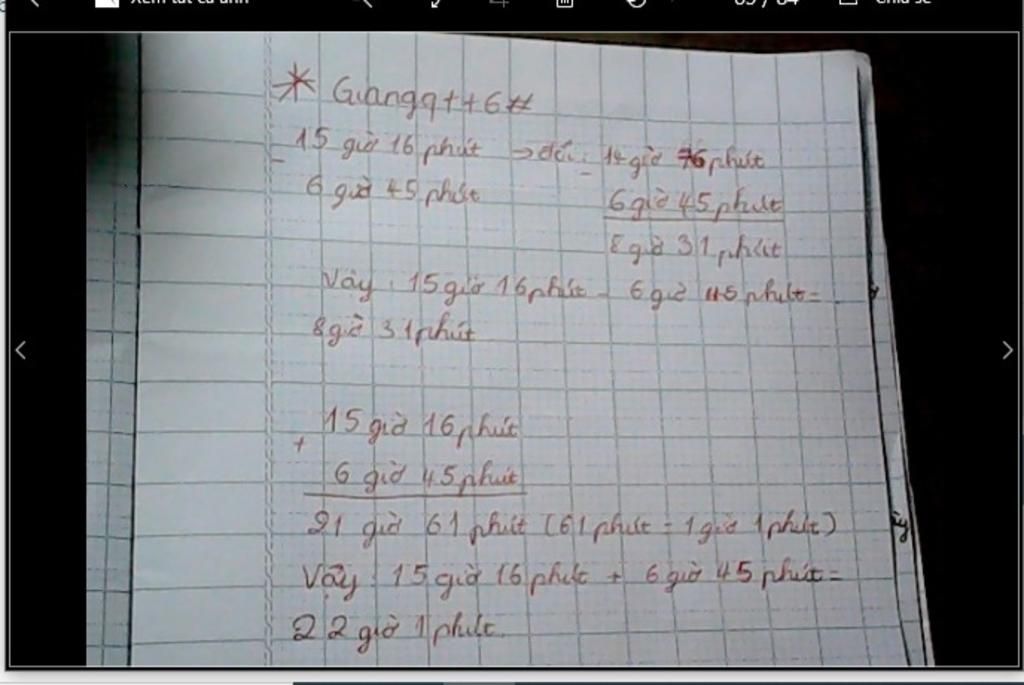 Xem tất cả ảnh 83 / 84 Chia sẻ
* Giangqt++6#
- 15 giờ 16 phút → đổi: - 14 giờ 76 phút
6 giờ 45 phút 6 giờ 45 phút
8 giờ 31 phút
Vậy: 15 giờ 16 phút - 6 giờ 45 phút =
8 giờ 31 phút
+ 15 giờ 16 phút
6 giờ 45 phút
21 giờ 61 phút (61 phút = 1 giờ 1 phút)
Vậy: 15 giờ 16 phút + 6 giờ 45 phút =
22 giờ 1 phút.